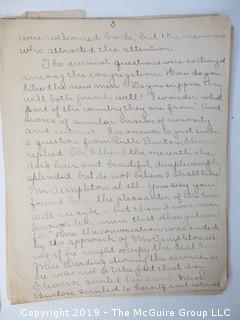 3
were welcomed back, but the new ones
who attracted the attention.
The annual questions were exchanged
among the congregation. How do you
like the new men? Do you suppose they
will both preach well? I wonder what
part of the country they are from? And
scores of similar shades of curiosity
and interest. In answer to just such
a question from Ruth Burton, Eleanor
replied Oh, I think the one with the
dark hair and beautiful dimples simply
splendid but do not believe I shall like
Mr. Templeton at all. You say you
found him the pleasanter of the two
Well maybe - but I never
know like men that other girls
But the conversation was ended
by the approach of Mr Templeton ask-
ing if he might occupy the seat by
Grace Harding during the service as
he was not to take part that day.
Eleanor smiled assent Miss
Burton smiled to herself and
Copyright 2019 - The McGuire Group LLC